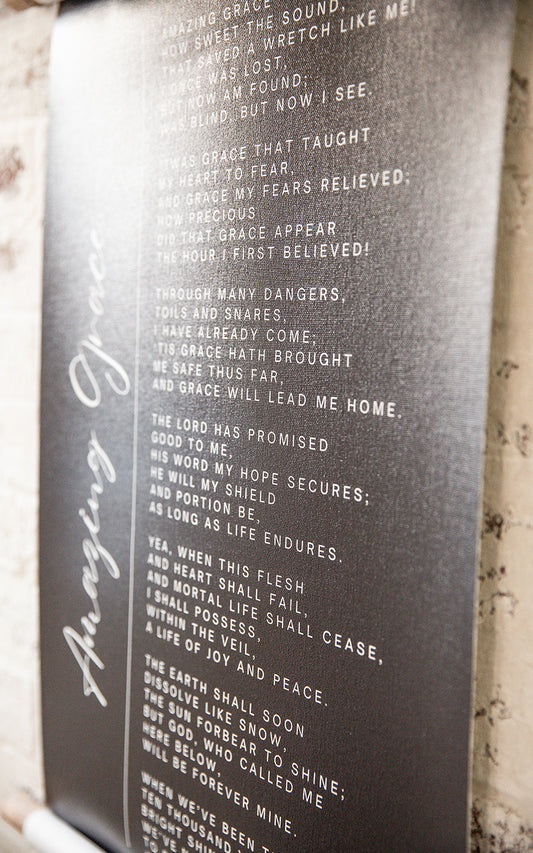 Amazing Grace
AMAZING GRACE
HOW SWEET THE SOUND,
THAT SAVED A WRETCH LIKE ME!
I ONCE WAS LOST,
BUT NOW AM FOUND;
WAS BLIND, BUT NOW I SEE.
'TWAS GRACE THAT TAUGHT
MY HEART TO FEAR,
AND GRACE MY FEARS RELIEVED;
HOW PRECIOUS
DID THAT GRACE APPEAR
THE HOUR I FIRST BELIEVED!
THROUGH MANY DANGERS,
TOILS AND SNARES,
I HAVE ALREADY COME;
'TIS GRACE HATH BROUGHT
ME SAFE THUS FAR,
AND GRACE WILL LEAD ME HOME.
THE LORD HAS PROMISED
GOOD TO ME,
HIS WORD MY HOPE SECURES;
HE WILL MY SHIELD
AND PORTION BE,
AS LONG AS LIFE ENDURES.
YEA, WHEN THIS FLESH
AND HEART SHALL FAIL,
AND MORTAL LIFE SHALL CEASE,
I SHALL POSSESS,
WITHIN THE VEIL,
A LIFE OF JOY AND PEACE.
THE EARTH SHALL SOON
DISSOLVE LIKE SNOW,
THE SUN FORBEAR TO SHINE;
BUT GOD, WHO CALLED ME
HERE BELOW,
WILL BE FOREVER MINE.
WHEN WE'VE BEEN
TEN THOUSAND
BRIGHT
WE'VE